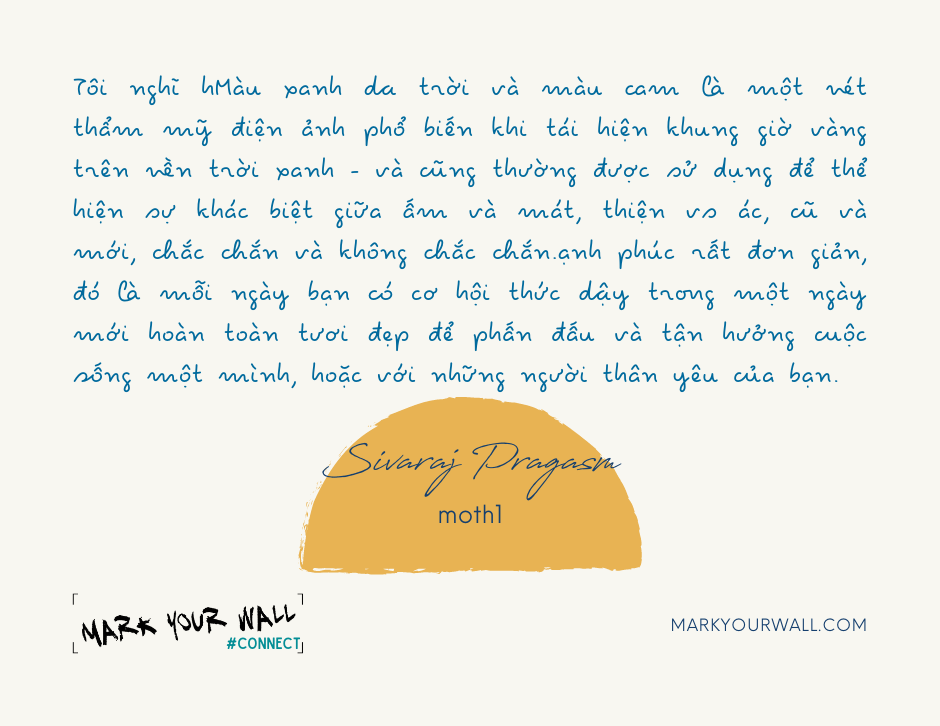 Tôi nghĩ hMàu xanh da trời và màu cam là một nét
thẩm mỹ điện ảnh phổ biến khi tái hiện khung giờ vàng
trên nền trời xanh - và cũng thường được sử dụng để thể
hiện sự khác biệt giữa ấm và mát, thiện vs ác, cũ và
mới, chắc chắn và không chắc chắn.ạnh phúc rất đơn giản,
đó là mỗi ngày bạn có cơ hội thức dậy trong một ngày
mới hoàn toàn tươi đẹp để phấn đấu và tận hưởng cuộc
sống một mình, hoặc với những người thân yêu của bạn.
Sivaraj Pragasm
moth1
MARK YOUR WALL
#CONNECT
MARKYOURWALL.COM